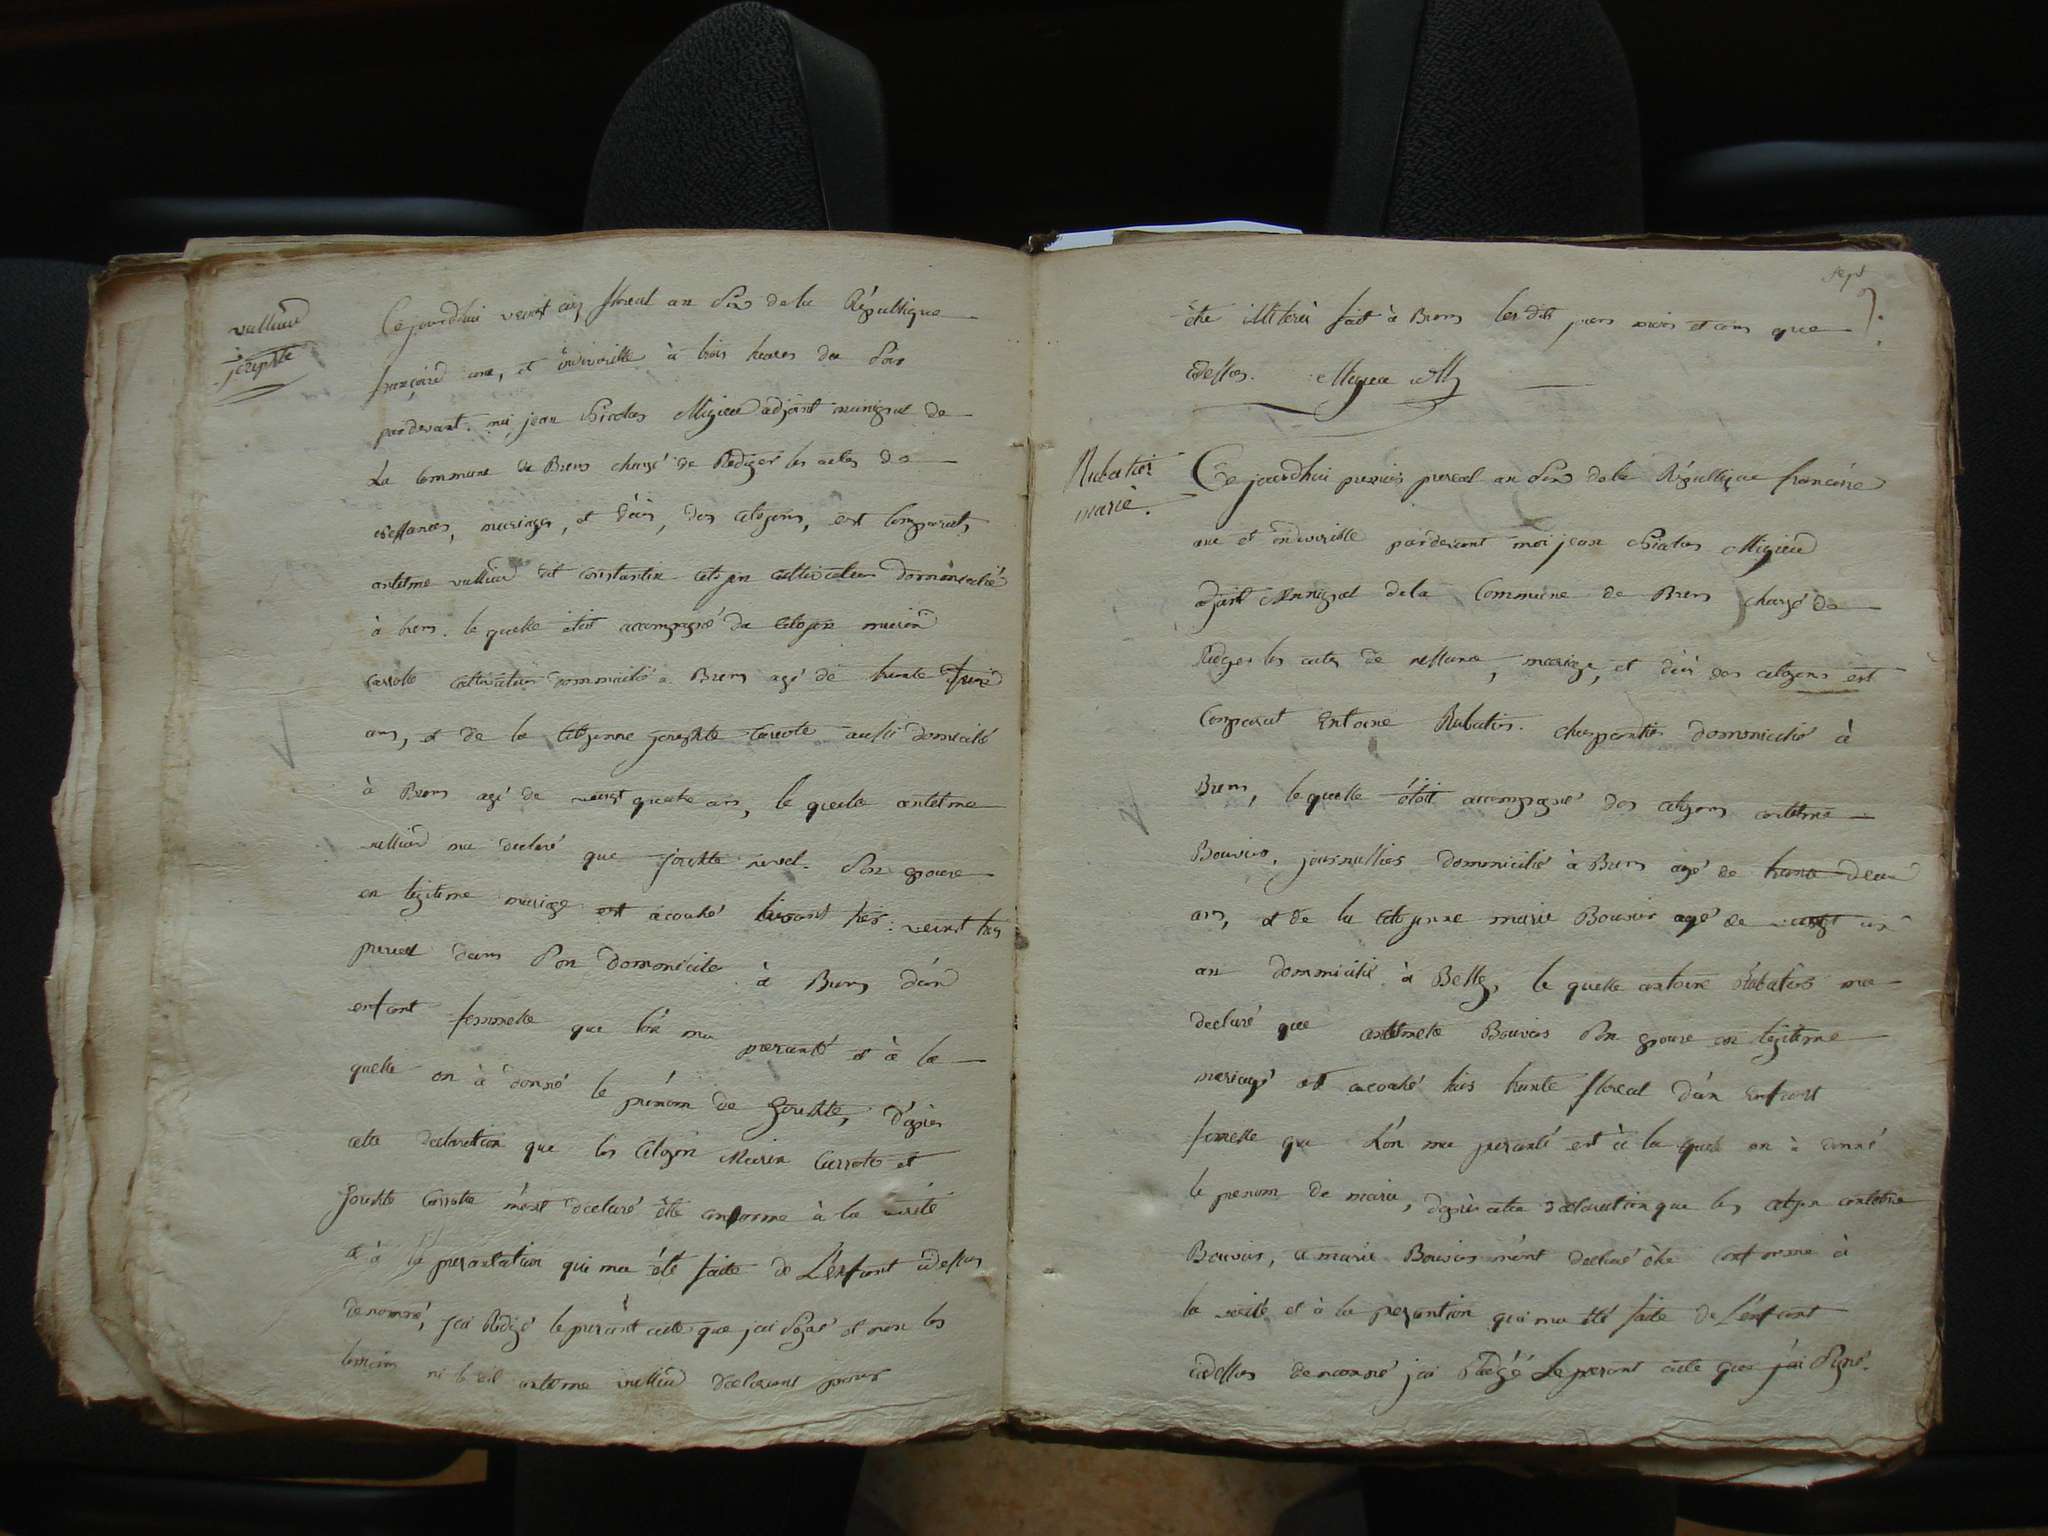 vullioud
josephte
Ce jourdhui veint cinq floreal an Six de la Républigue
françoise une, et indivisible à trois heures du Soir
pardevant moi jean Nicolas Migieu adjoint municipal de
La Commune de Brens chargé de Rediger les actes de
nessances, mariages, et décès, des citoyens, est Comparuts
antelme vullioud dit constantin citoyen cultivateur dommicilié
à brens. le quelle étoit accompagné du Citoyen
carrotte cultivateur dommicilié a Brens agé de trente
ans, et de la Citoyenne josephte carrotte aussi domicilié
à Brens agé de veint quatre ans, le quelle antelme
vullioud ma declaré que josephte Son epouse
en légitime mariage est acouché veint trois
dans Son dommicile à Brens d'un
enfant femmelle que l'on ma presanté et à la
quelle on à donné le prénom de Josephte, d'après
cette declaration que les Citoyen Marin Carrotte et
Josephte Carrotte m'ont déclaré être conforme à la vérité
et à la presantation qui ma été faite de L'enfant cidessus
denommé, j'ai Redigé le present acte que j'ai Signé et non les
temoins ni le dit antelme vullioud declarant pour
sept
être illiteré fait à Brens les dits jours mois et ans que
cidessus. Migieu adj
Rubatier
marie.
Ce jourdhui premier prereal an Six de la Républiqoue francoise
une et indivisible pardevant moi jean Nicolas Migieu
adjoint Municipal de la Commune de Brens chargé de
Rediger les actes de nessance, mariage, et décès des citoyens est
Comparut Entoine Rubatier. charpantier dommicilié à
Brens, le quelle étoit accompagné des citoyens antelme
Bouvier, journallier dommicilié à Brens agé de trente deux
ans, et de la Citoyenne marie Bouvier agé de veingt un
an dommicilié à Belley, le quelle antoine Rubatier ma
declaré que antelmete Bouvier Son epouse en légitime
mariage est acouché hier trente floreal d'un Enfant
femelle que L'on ma presanté est à la quele on à donné
le prenom de marie, d'après cette declaration que les citoyen antelme
Bouvier, et marie Bouvier m'ont declaré être conforme à
la verité et à la presantion qui ma été faite de L'enfant
cidessus denommé j'ai Rédigé Le presant acte que j'ai Signé.